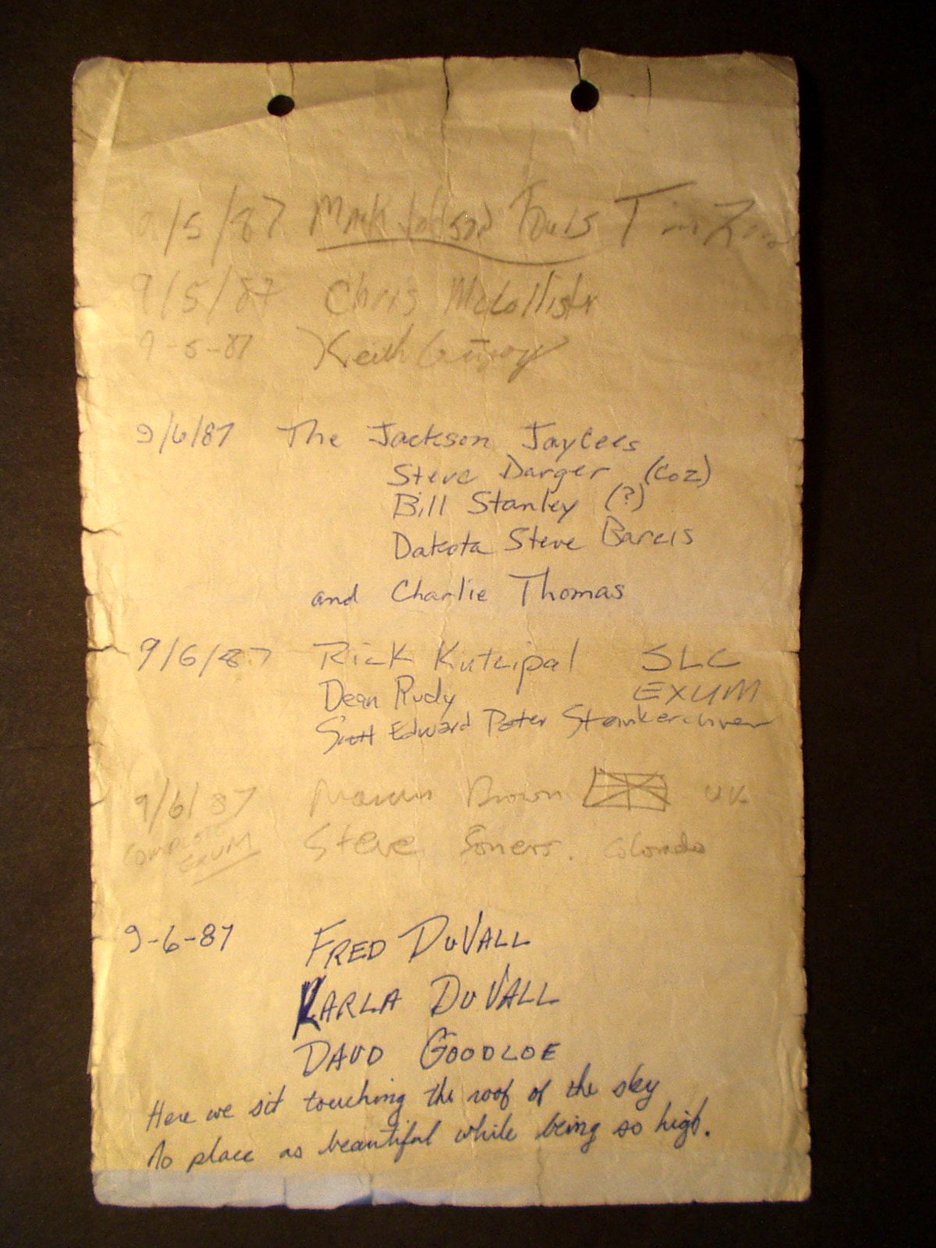 9/5/87 Mark
9/5/87 Chris McCollister
9-5-87 Keith
9/6/87 The Jackson Jaycees
Steve Darger (Coz)
Bill Stanley (?)
Dakota Steve Barcis
and Charlie Thomas
9/6/87 Rick Kutcipal SLC
Dean Rudy EXUM
Scott Edward Peter
9/6/87 Brown UK
COMPLETE Steve Colorado
EXUM
9-6-87 FRED DUVALL
KARLA DUVALL
DAVD GOODLOE
Here we sit touching the roof of the sky
No place as beautiful while being so high.